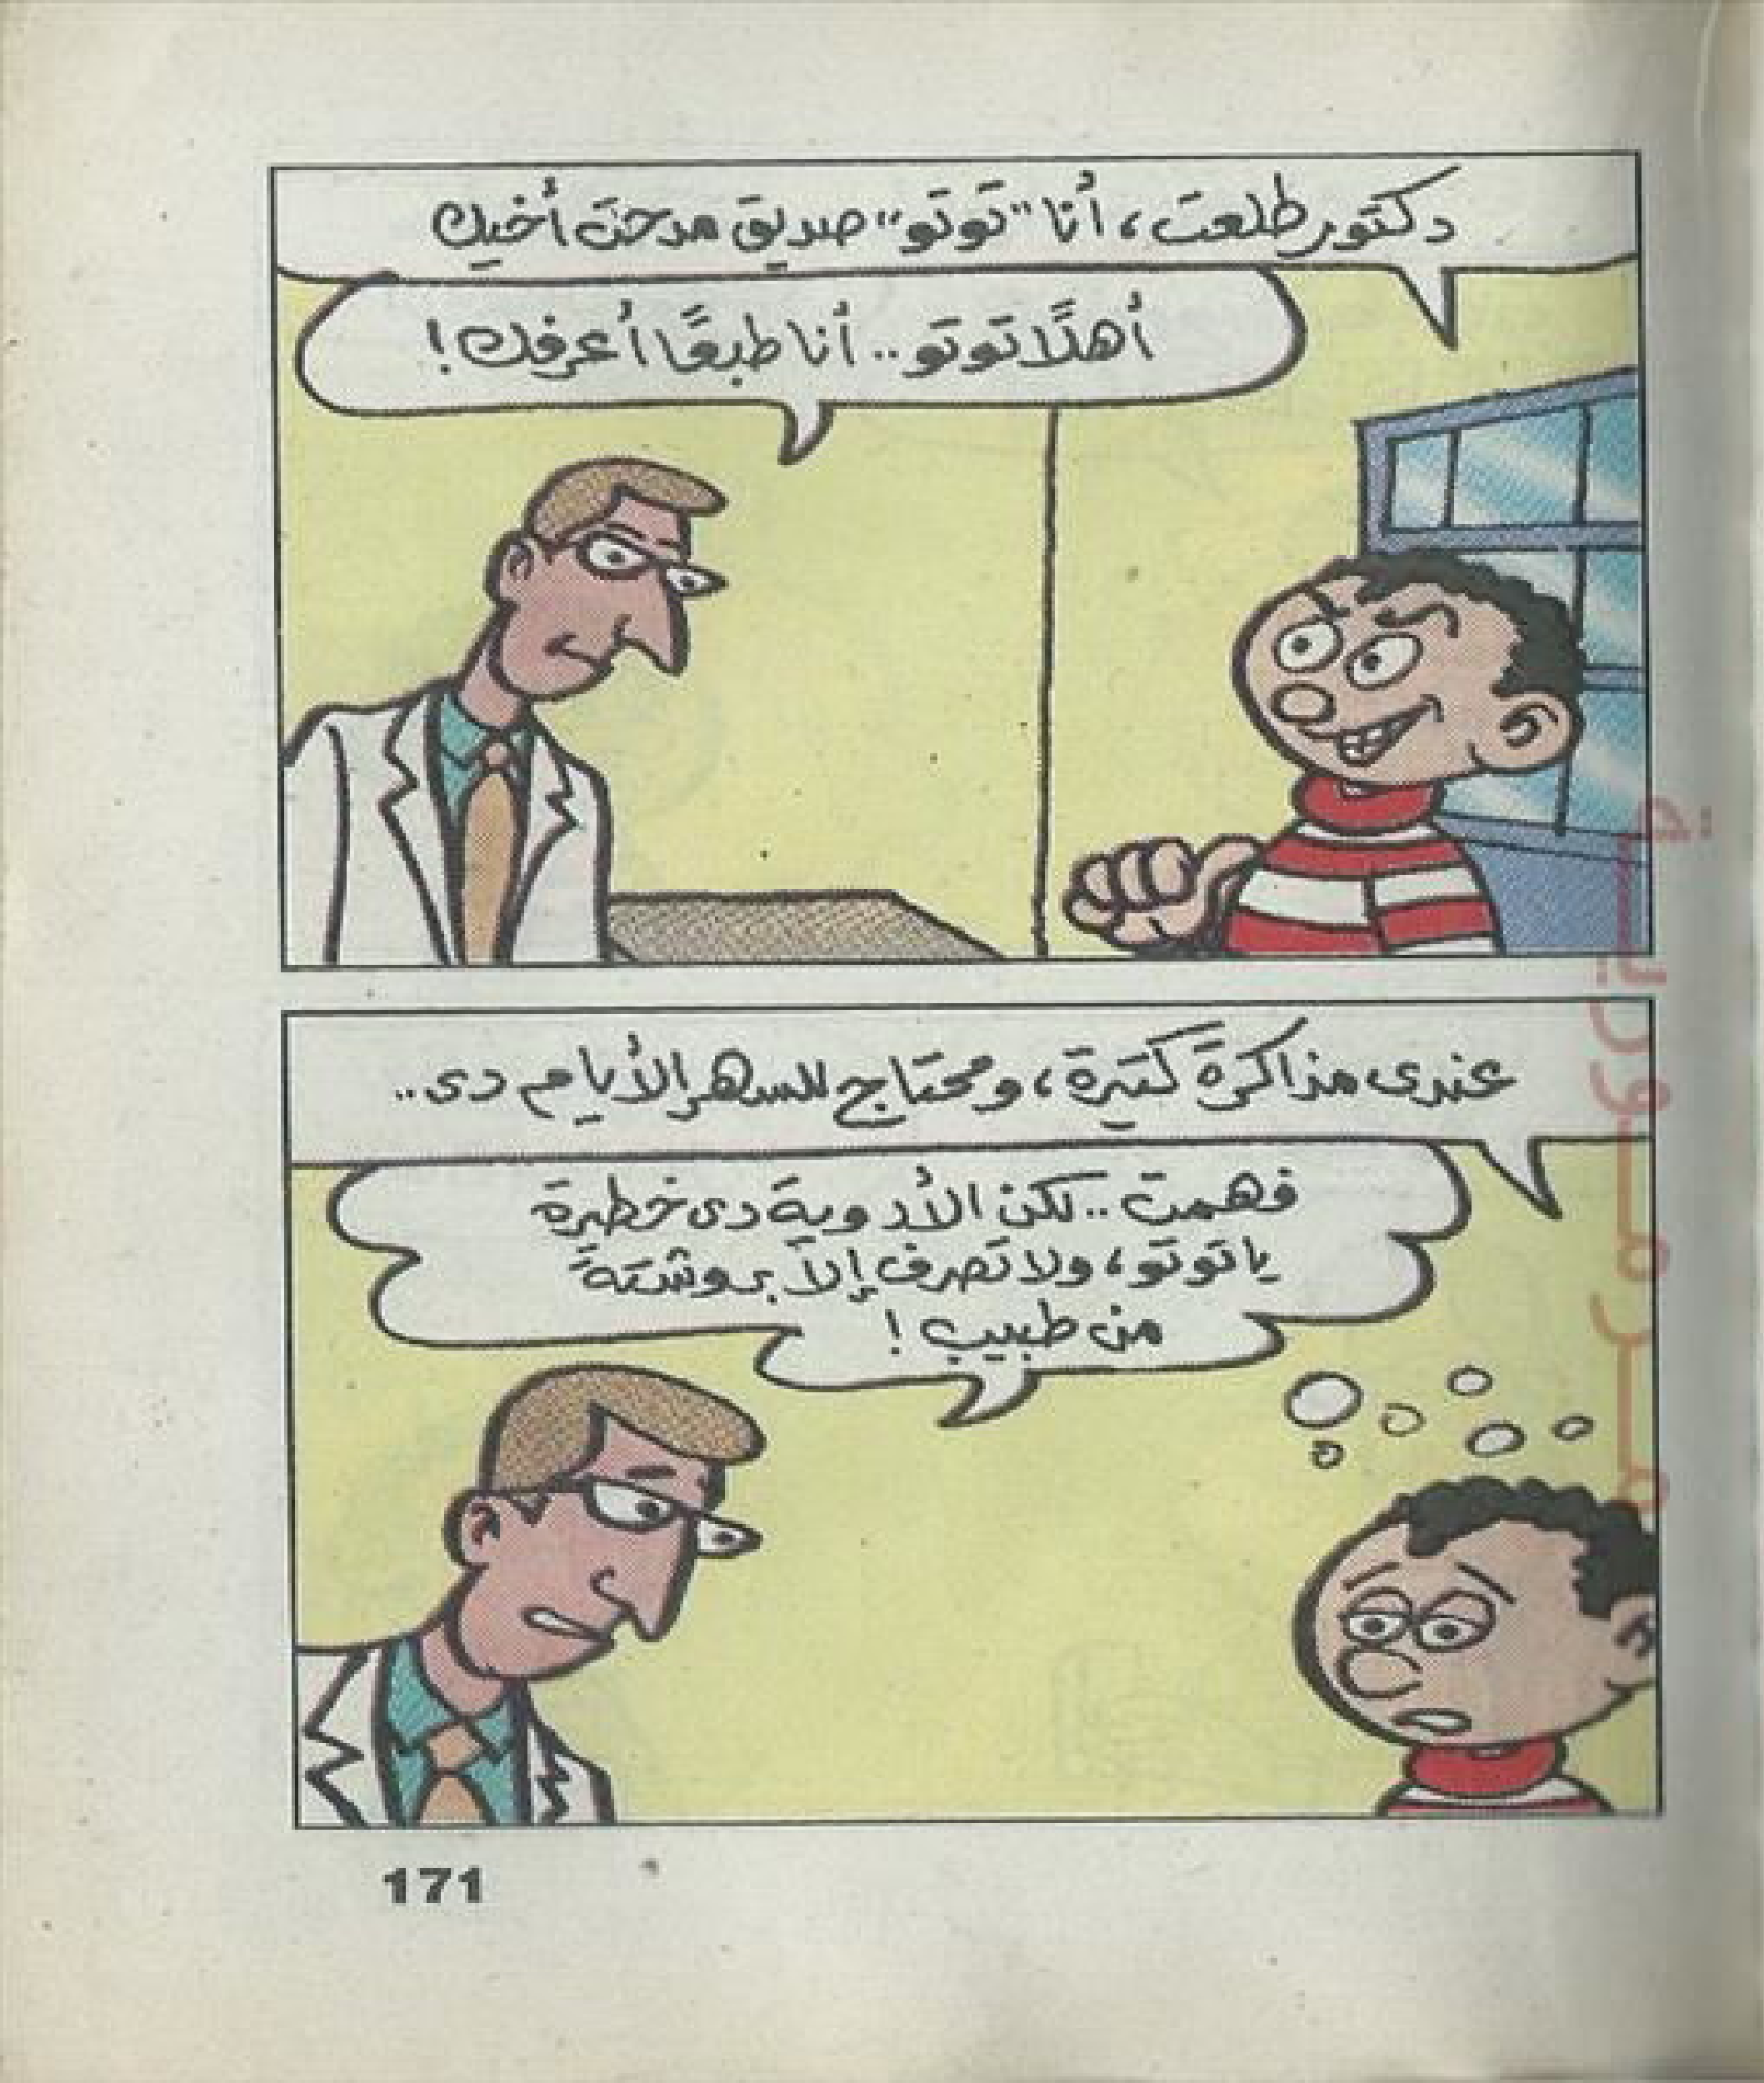 دكتور طلعت، أنا "توتو" صديق مدحت أخيك
أهلًا توتو.. أنا طبعًا أعرفك!
عندى مذاكرة كتيرة، ومحتاج للسهر الأيام دى..
فهمت.. لكن الأدوية دى خطيرة
ياتوتو، ولا تصرف إلا بروشتة
من طبيب!
171